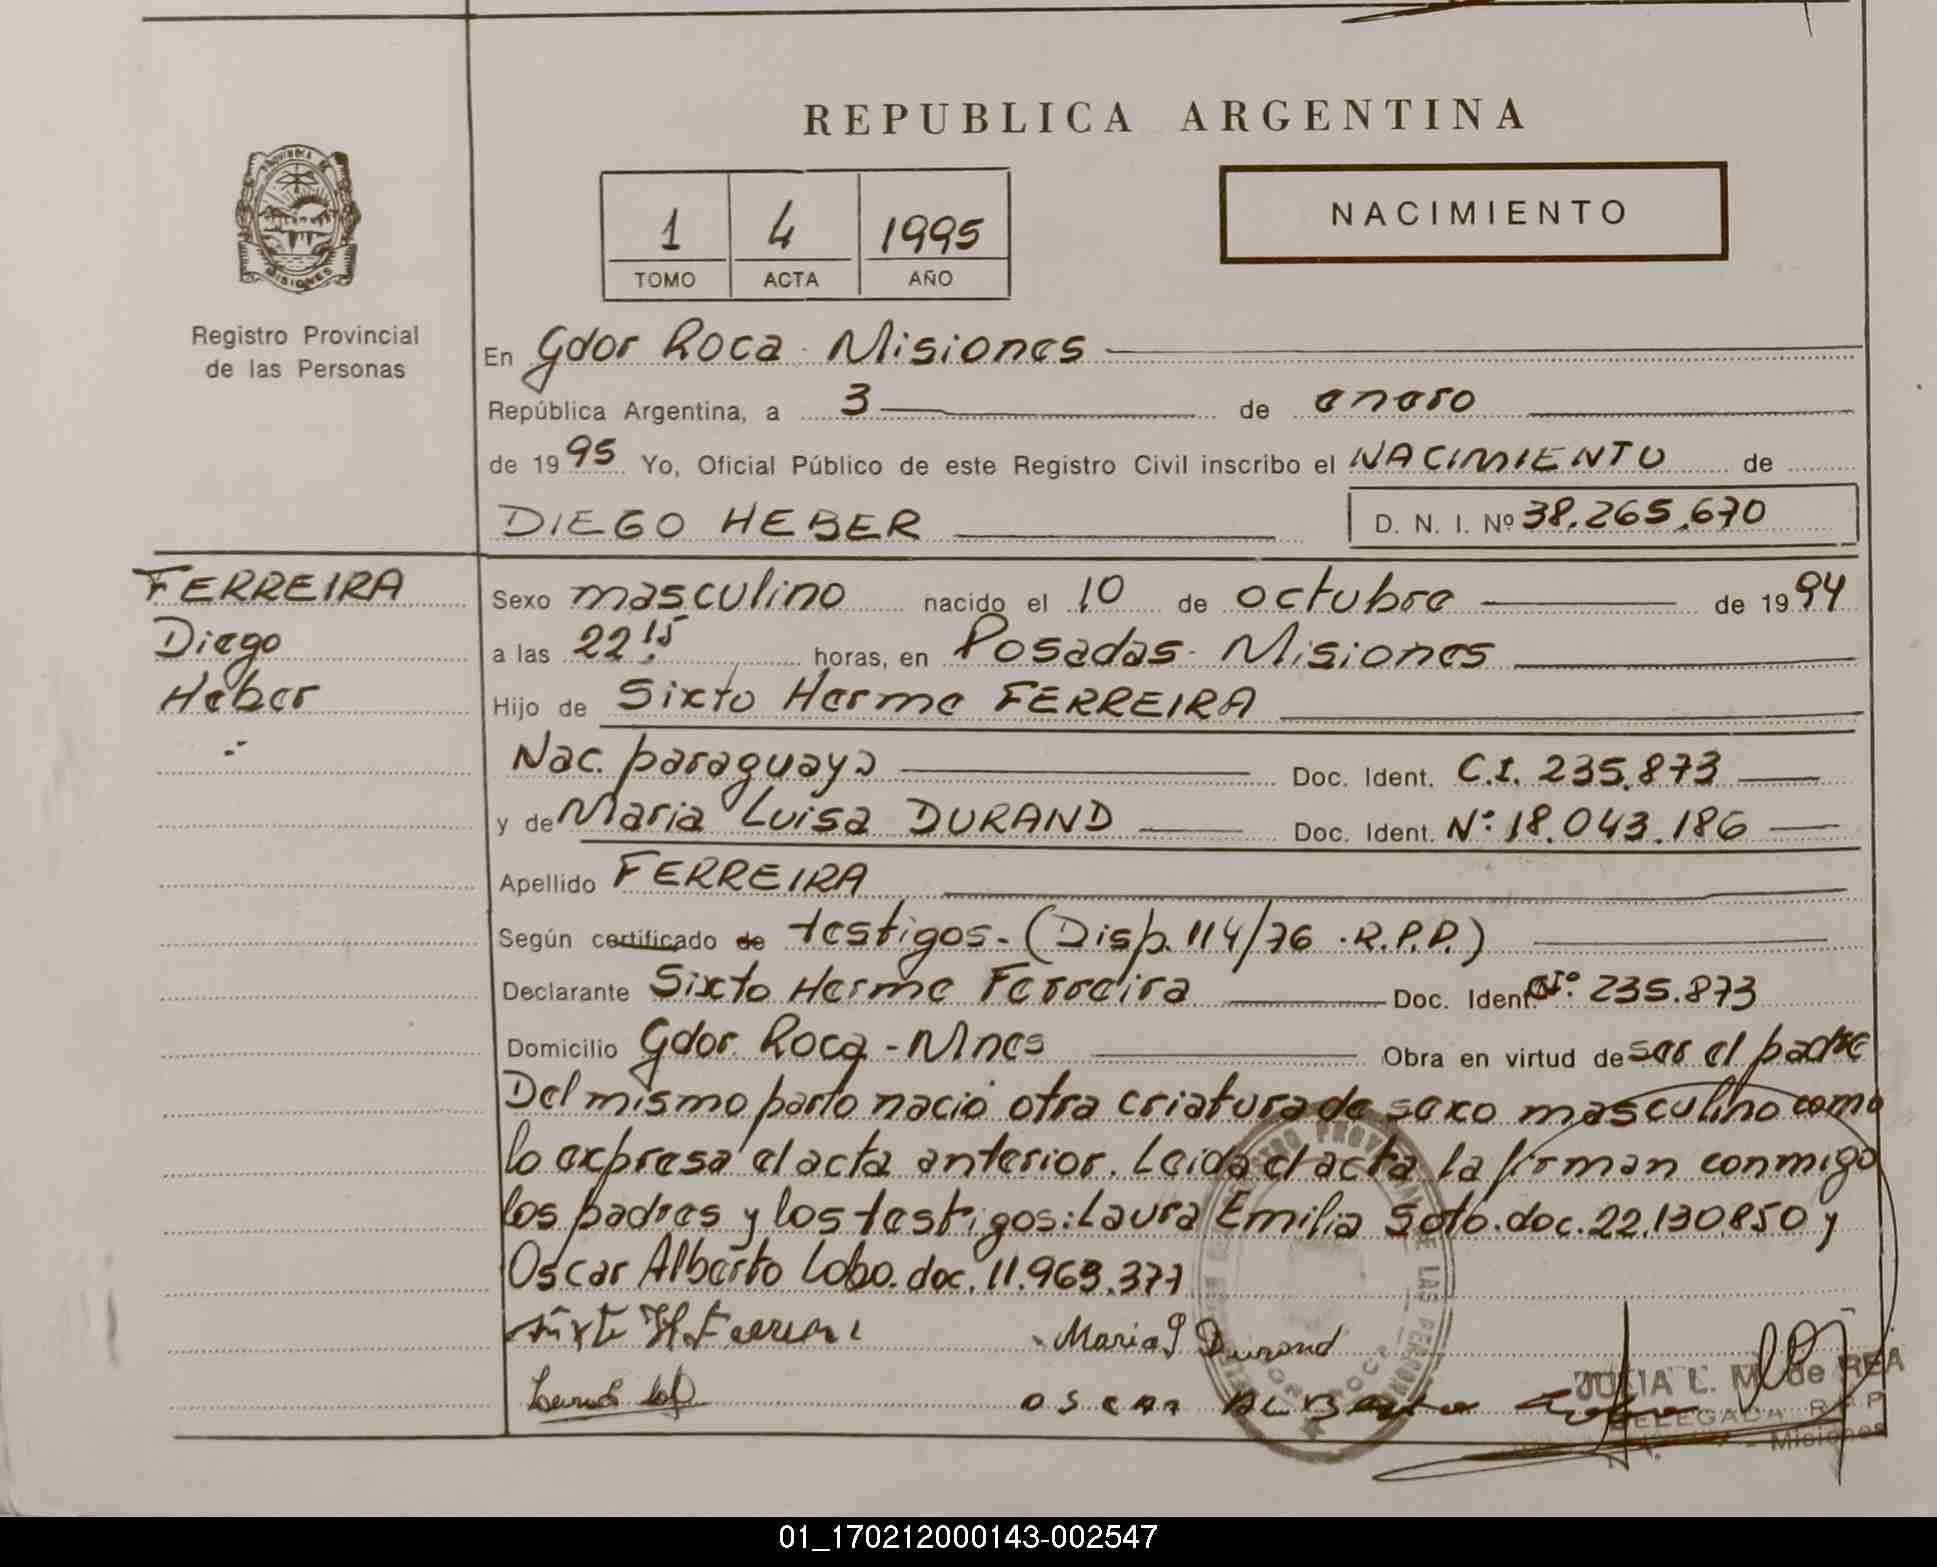 REPUBLICA ARGENTINA
PROVINCIA DE
MISIONES
Registro Provincial
de las Personas
1 4 1995
TOMO ACTA AÑO
NACIMIENTO
En Gdor Roca - Misiones
República Argentina, a 3 de enero
de 1995 Yo, Oficial Público de este Registro Civil inscribo el NACIMIENTO de
DIEGO HEBER D. N. I. Nº 38.265.670
FERREIRA
Diego
Heber
Sexo masculino nacido el 10 de octubre de 1994
a las 22.15 horas, en Posadas - Misiones
Hijo de Sixto Herme FERREIRA
Nac. paraguaya Doc. Ident. C.I. 235.873
y de Maria Luisa DURAND Doc. Ident. Nº 18.043.186
Apellido FERREIRA
Según certificado de testigos - (Disp. 114/76 . R.P.P.)
Declarante Sixto Herme Ferreira Doc. Ident. Nº 235.873
Domicilio Gdor. Roca - Mnes Obra en virtud de ser el padre
Del mismo parto nació otra criatura de sexo masculino como
lo expresa el acta anterior. Leida el acta la firman conmigo
los padres y los testigos: Laura Emilia Soto. doc. 22.130.850 y
Oscar Alberto Lobo. doc. 11.963.377
Sixto H. Ferreira Maria L Durand
OSCAR ALBERTO Lobo
JULIA L. M. de REA
DELEGADA R.P.P.
Misiones
01_170212000143-002547